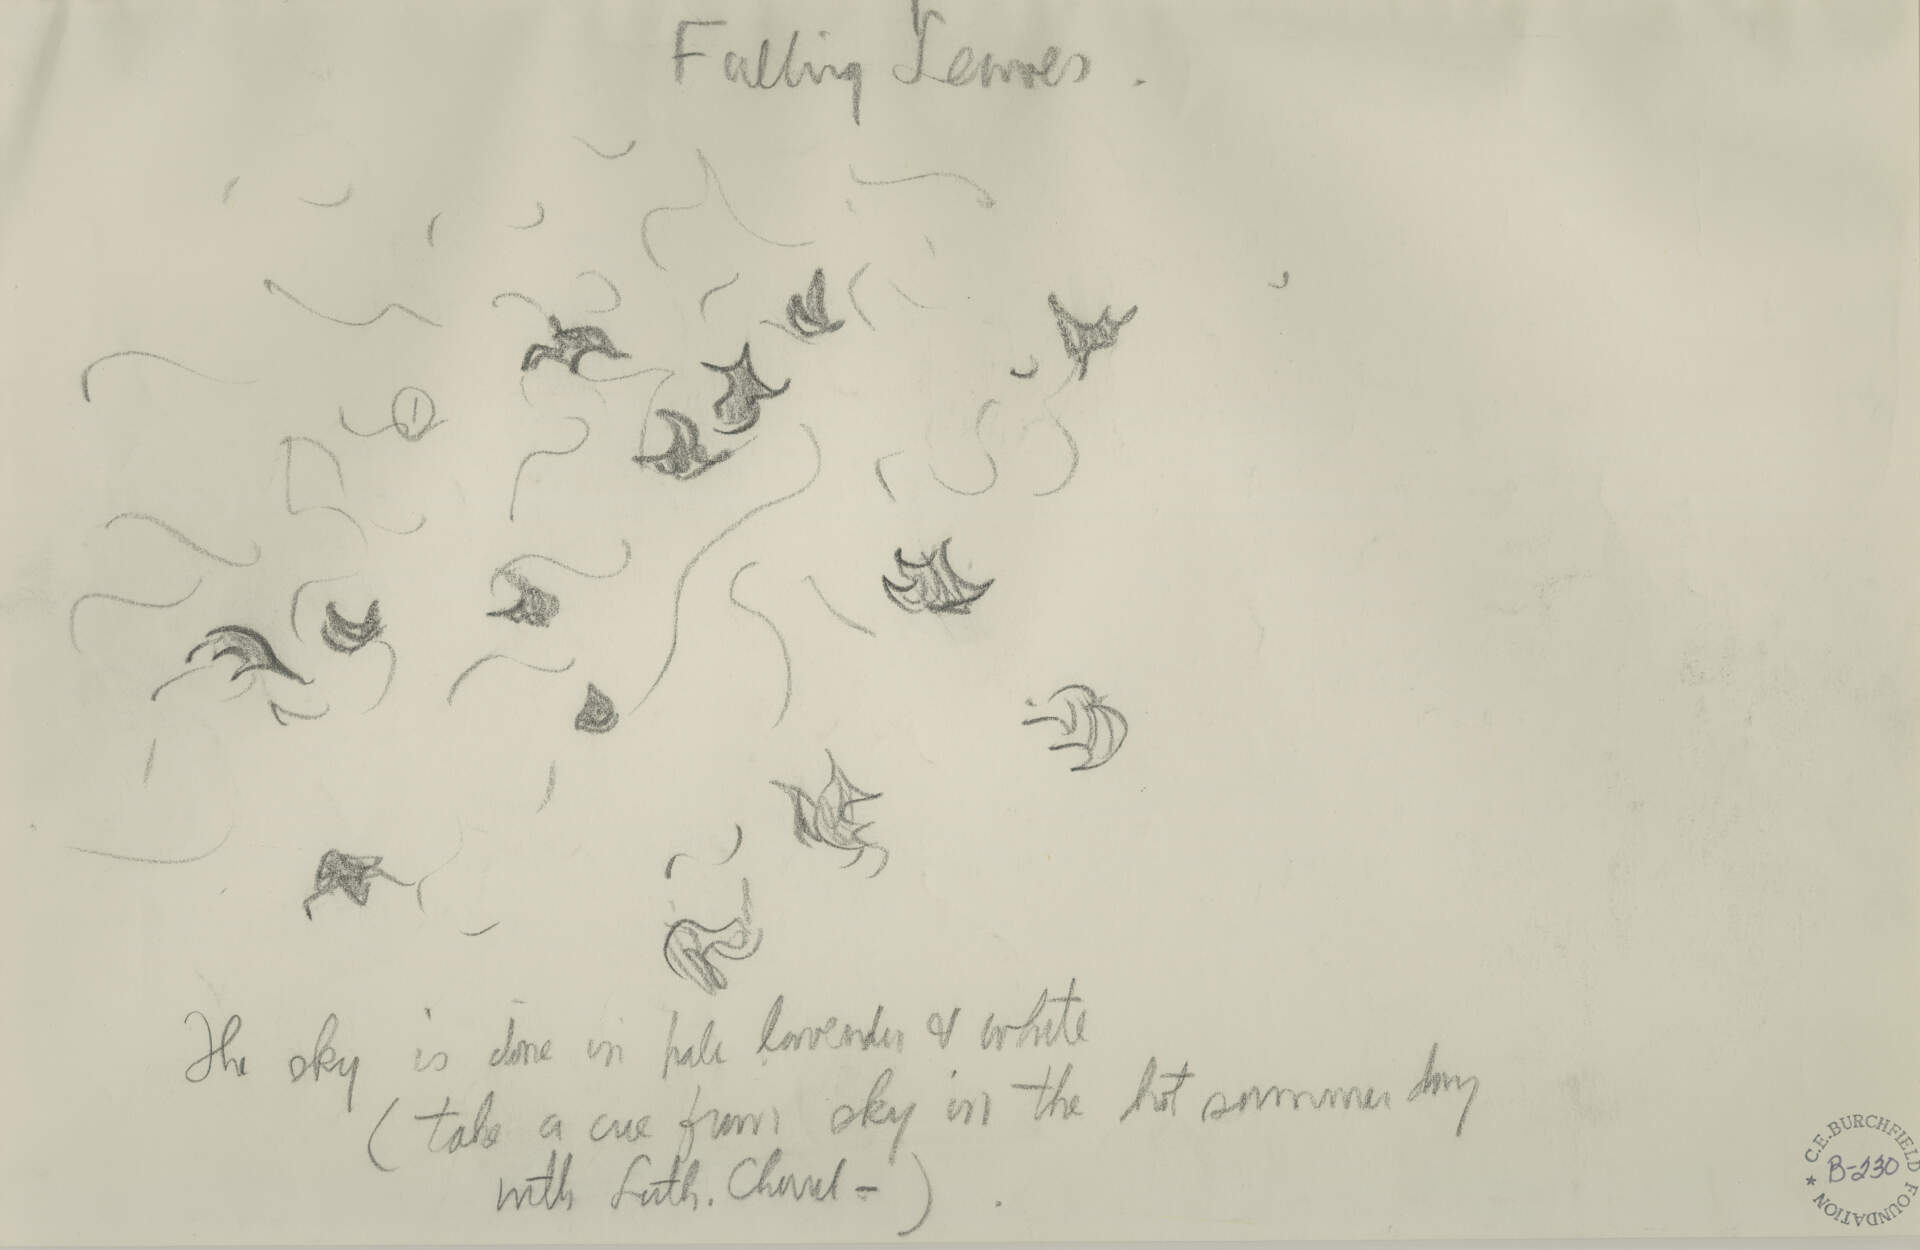 Falling Leaves.
The sky is done in pale lavender & white
(take a cue from sky in the hot summer day
with Luth. Church -) .
C.E. BURCHFIELD FOUNDATION ★
B-230